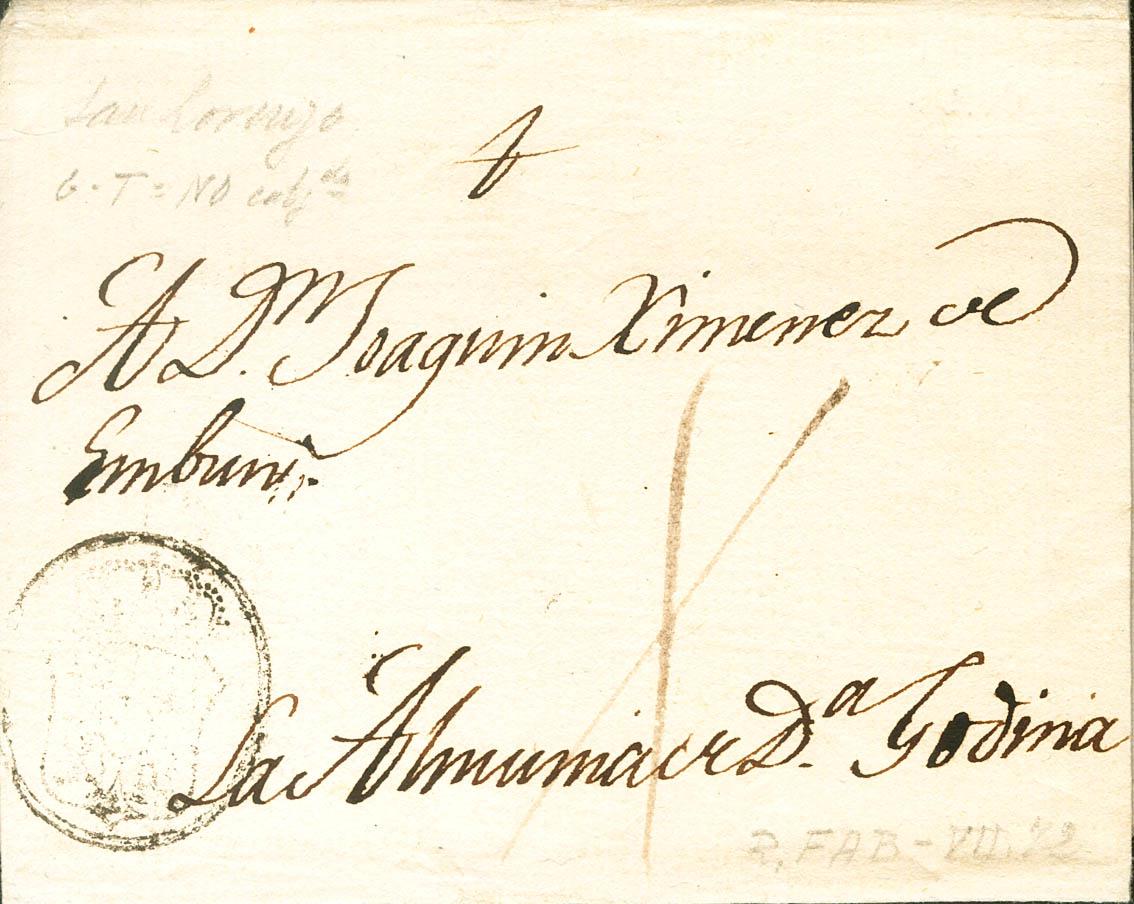 San Lorenzo
G-T = NO
A D.n Joaquin Ximenez de
Embun
La Almunia de D.a Godina
R. FAB - VII. 72